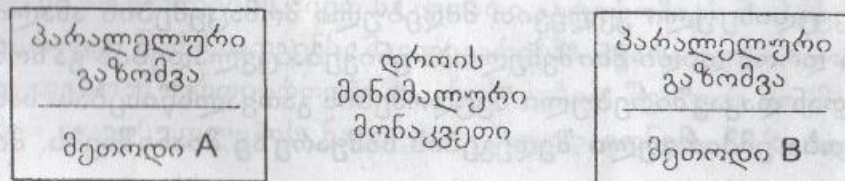 პარალელური
გაზომვა
მეთოდი A
დროის
მინიმალური
მონაკვეთი
პარალელური
გაზომვა
მეთოდი B